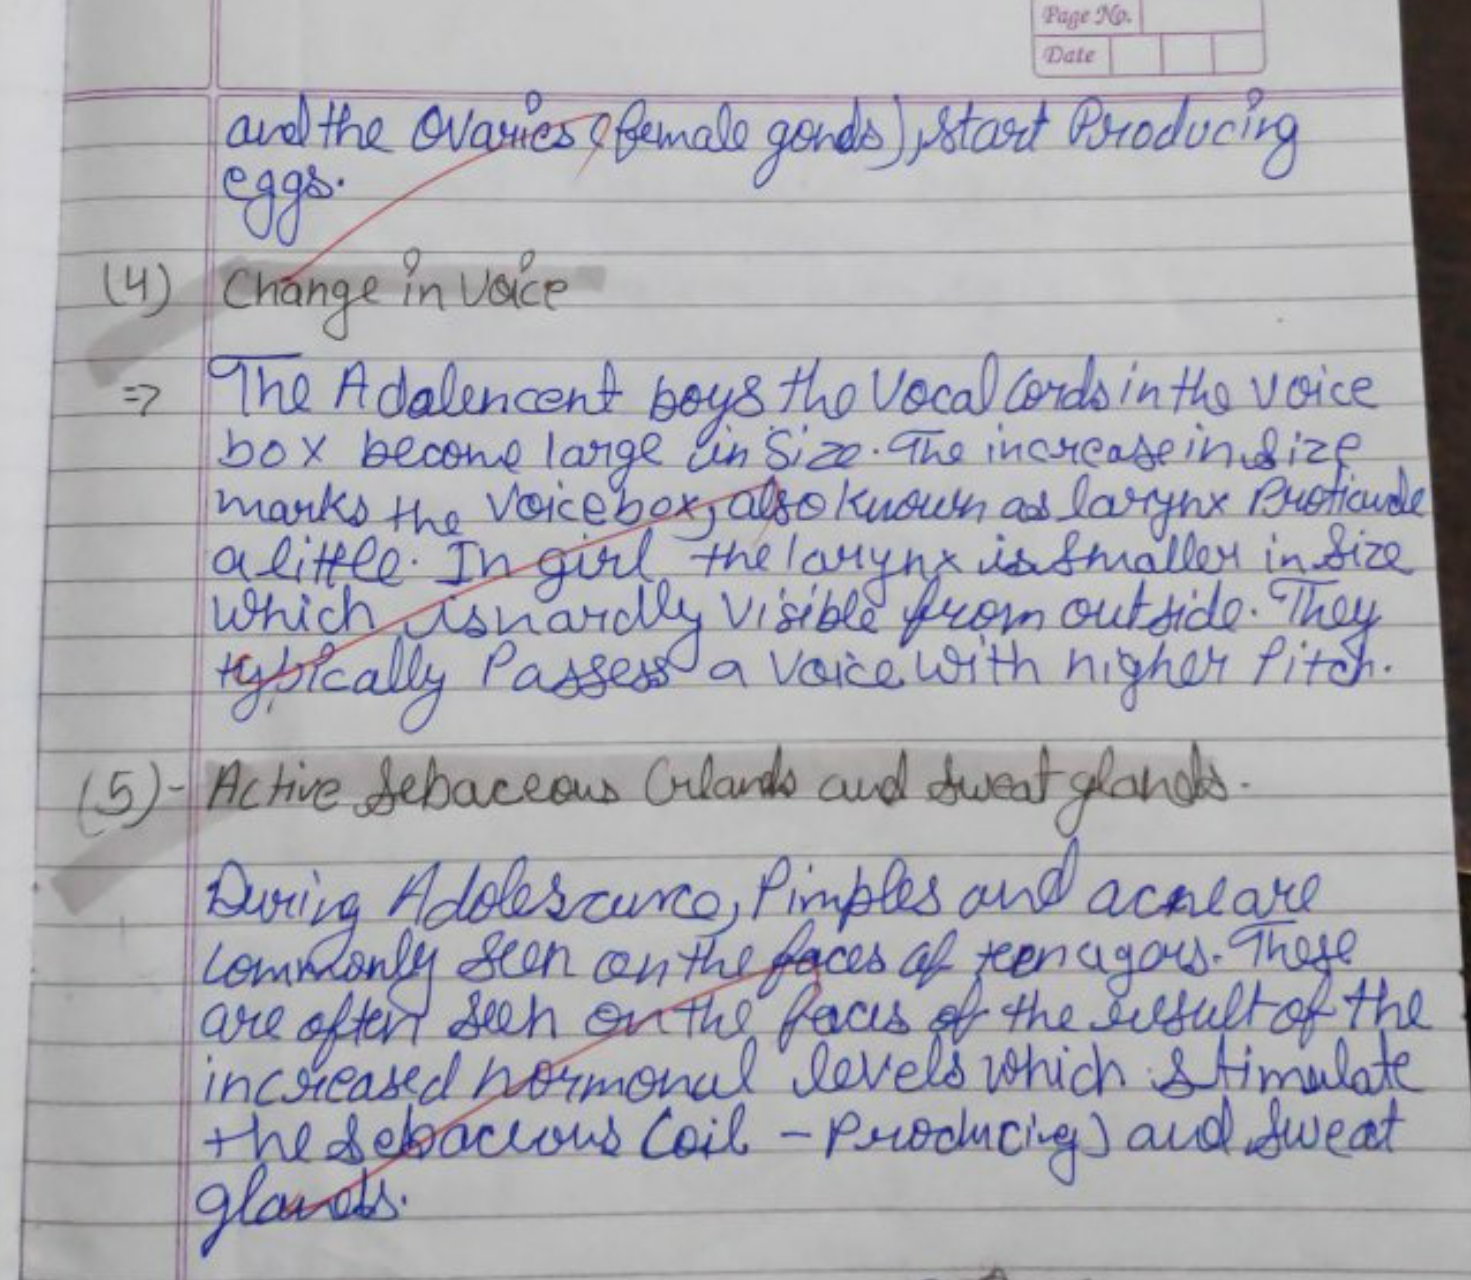 Page No.
Date
and the Ovaries (female gonds), start Producing
eggs.
(4) Change in Voice
=> The Adalencent boys the Vocal Cords in the voice
box become large in Size. The increase in size
marks the Voice box, also known as larynx Proticude
a little. In girl the larynx is smaller in Size
which is hardly visible from outside. They
typically Passess a voice with higher Pitch.
(5)- Active Sebaceous Glands and sweat glands.
During Adolescence, Pimples and acne are
commonly seen on the faces of teenagors. These
are often seen on the faces of the result of the
increased hormonal levels which stimulate
the Sebaceous Coil - Producing) and sweat
glands.